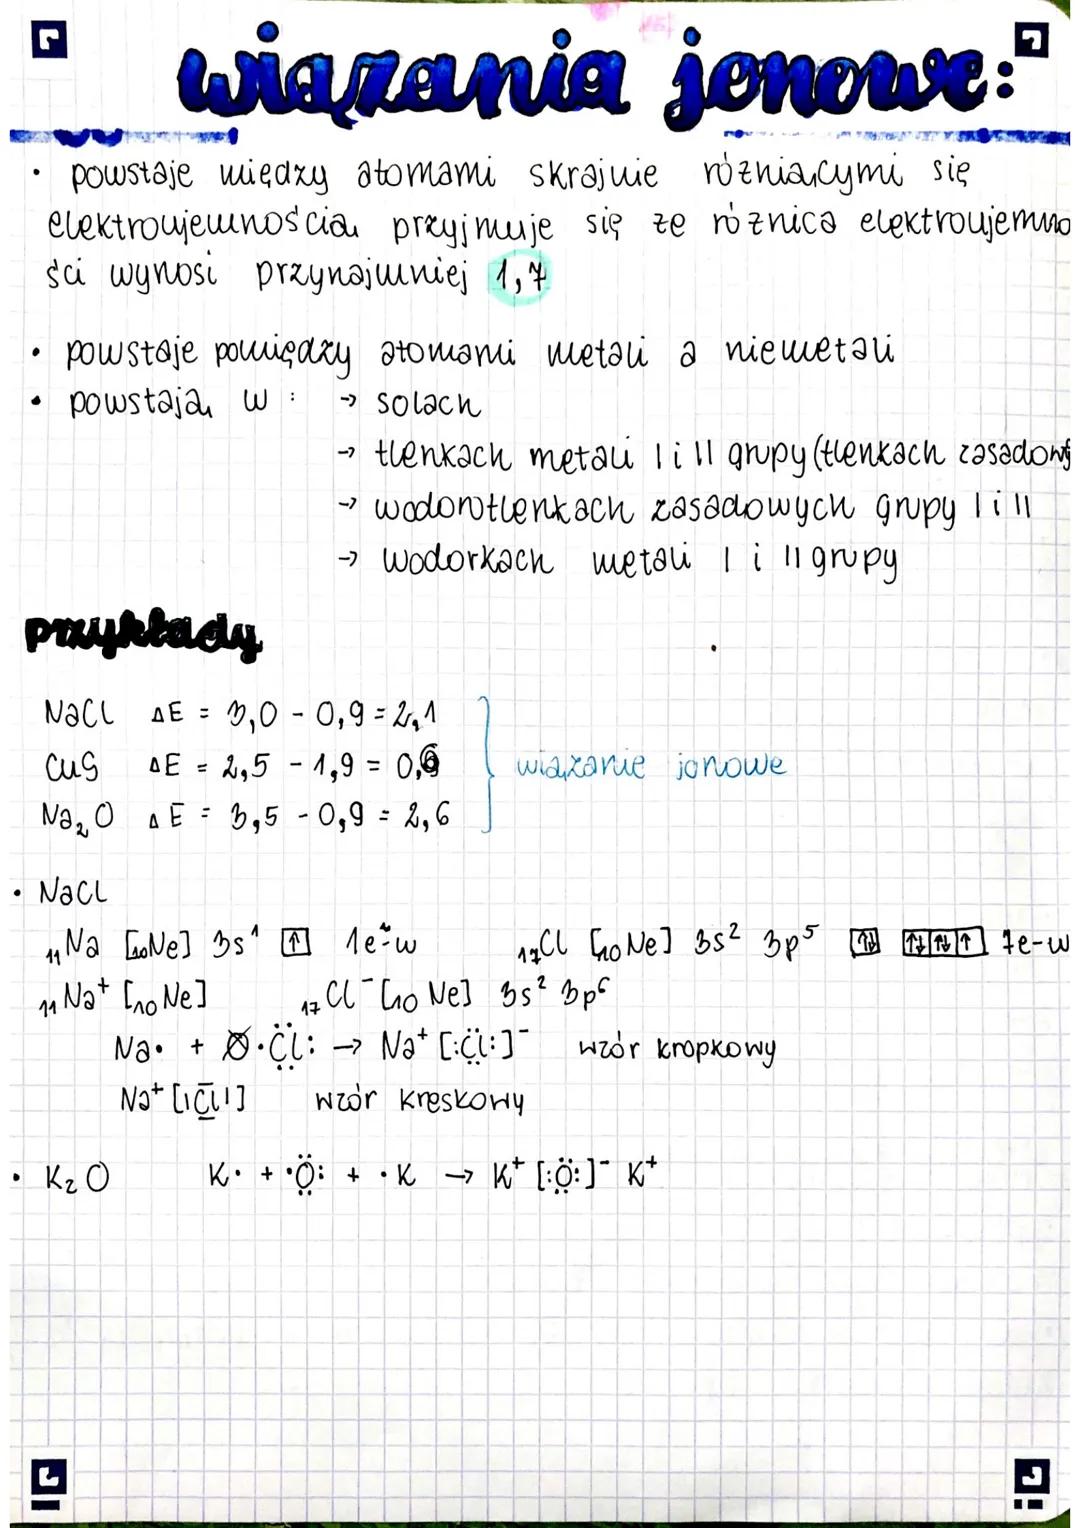 wiązania jonowe:
• powstaje między atomami skrajnie różniącymi się
elektroujemnością przyjmuje się że różnica elektroujemno
ści wynosi przynajmniej 1,7
• powstaje pomiędzy atomami metali a niemetali
• powstają w : → solach
→ tlenkach metali I i II grupy (tlenkach zasadowy
→ wodorotlenkach zasadowych grupy I i II
→ wodorkach metali I i II grupy
przykłady
NaCl ΔE = 3,0 - 0,9 = 2,1
CuS ΔE = 2,5 - 1,9 = 0,6 wiązanie jonowe
Na₂O ΔE = 3,5 - 0,9 = 2,6
• NaCl
₁₁Na [₁₀Ne] 3s¹ [↑] 1e⁻w ₁₇Cl [₁₀Ne] 3s² 3p⁵ [↑↓] [↑↓|↑↓|↑] 7e-w
₁₁Na⁺ [₁₀Ne] ₁₇Cl⁻ [₁₀Ne] 3s² 3p⁶
Na• + •C̤̈l: → Na⁺ [:C̤̈l:]⁻ wzór kropkowy
Na⁺ [|C̲̅l|] wzór kreskowy
• K₂O K• + •Ö̤: + •K → K⁺ [:Ö̤:]⁻ K⁺